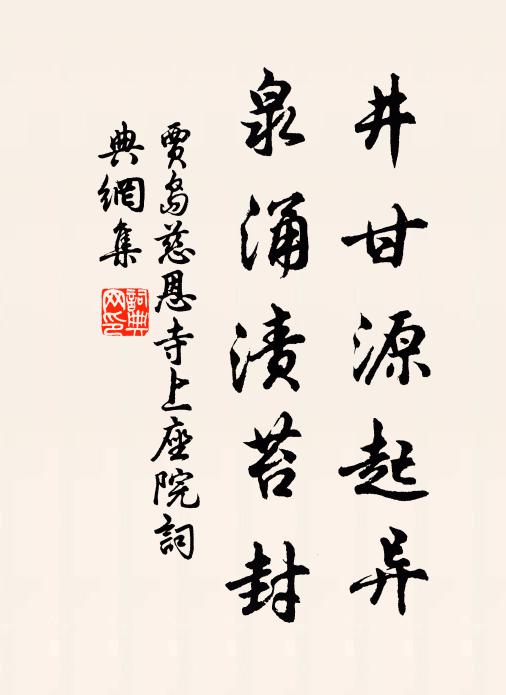 井甘源起异
泉涌渍苔封
贾岛慈恩寺上座院词
典網集
詞典网印